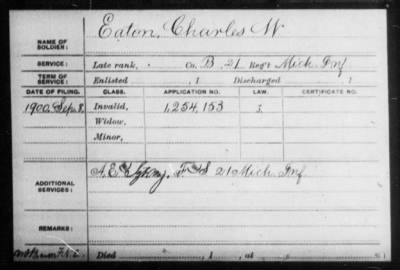 NAME OF SOLDIER: Eaton, Charles W
SERVICE: Late rank, Co. B, 21 Reg't Mich. Inf
TERM OF SERVICE: Enlisted , 1 Discharged , 1
DATE OF FILING. CLASS. APPLICATION NO. LAW. CERTIFICATE NO.
1900, Sep. 8, Invalid, 1,254,153
Widow,
Minor,
ADDITIONAL SERVICES: F & S 21 Mich Inf
REMARKS:
Died , 1 , at